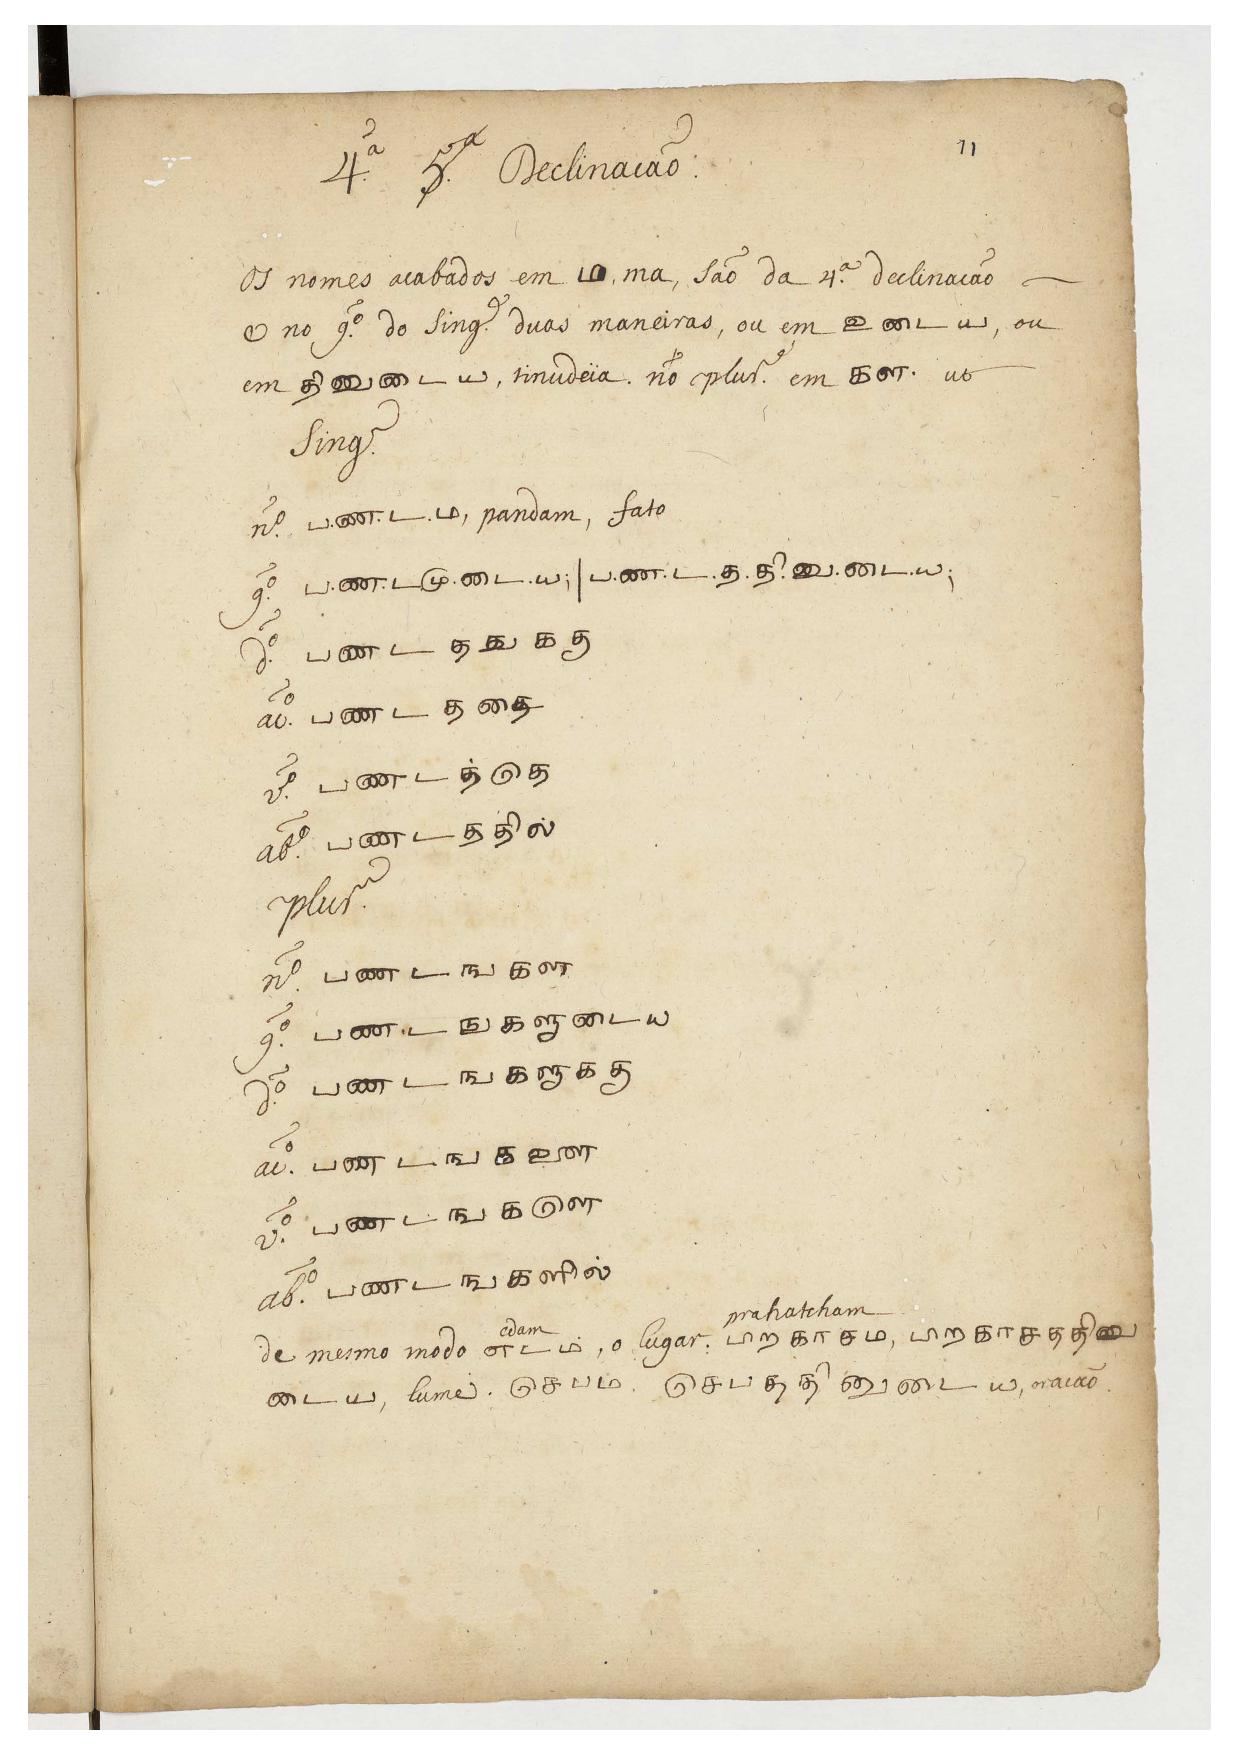 11
4.ª 5.ª Declinacaõ:
Os nomes acabados em ம, ma, saõ da 4.ª declinacaõ
e no g.º do Sing.r duas maneiras, ou em உடைய, ou
em தினுடைய, tinudeïa. no plur.e em கள. ut
Sing.r
n.º ப.ண.ட.ம, pandam, fato
g.º ப.ண.டமு.டை.ய; | ப.ண.ட.த.தி.னு.டை.ய;
d.º பணடததுககு
ac.º பணடததை
v.º பணடத்தே
ab.º பணடததில்
plur.
n.º பணடஙகள
g.º பணடஙகளுடைய
d.º பணடஙகளுககு
ac.º பணடஙகளை
v.º பணடஙகளே
ab.º பணடஙகளில்
edam prahatcham
de mesmo modo எடம், o lugar. பிறகாசம, பிறகாசததினு
டைய, lume. செபம். செபததினுடைய, oracaõ.